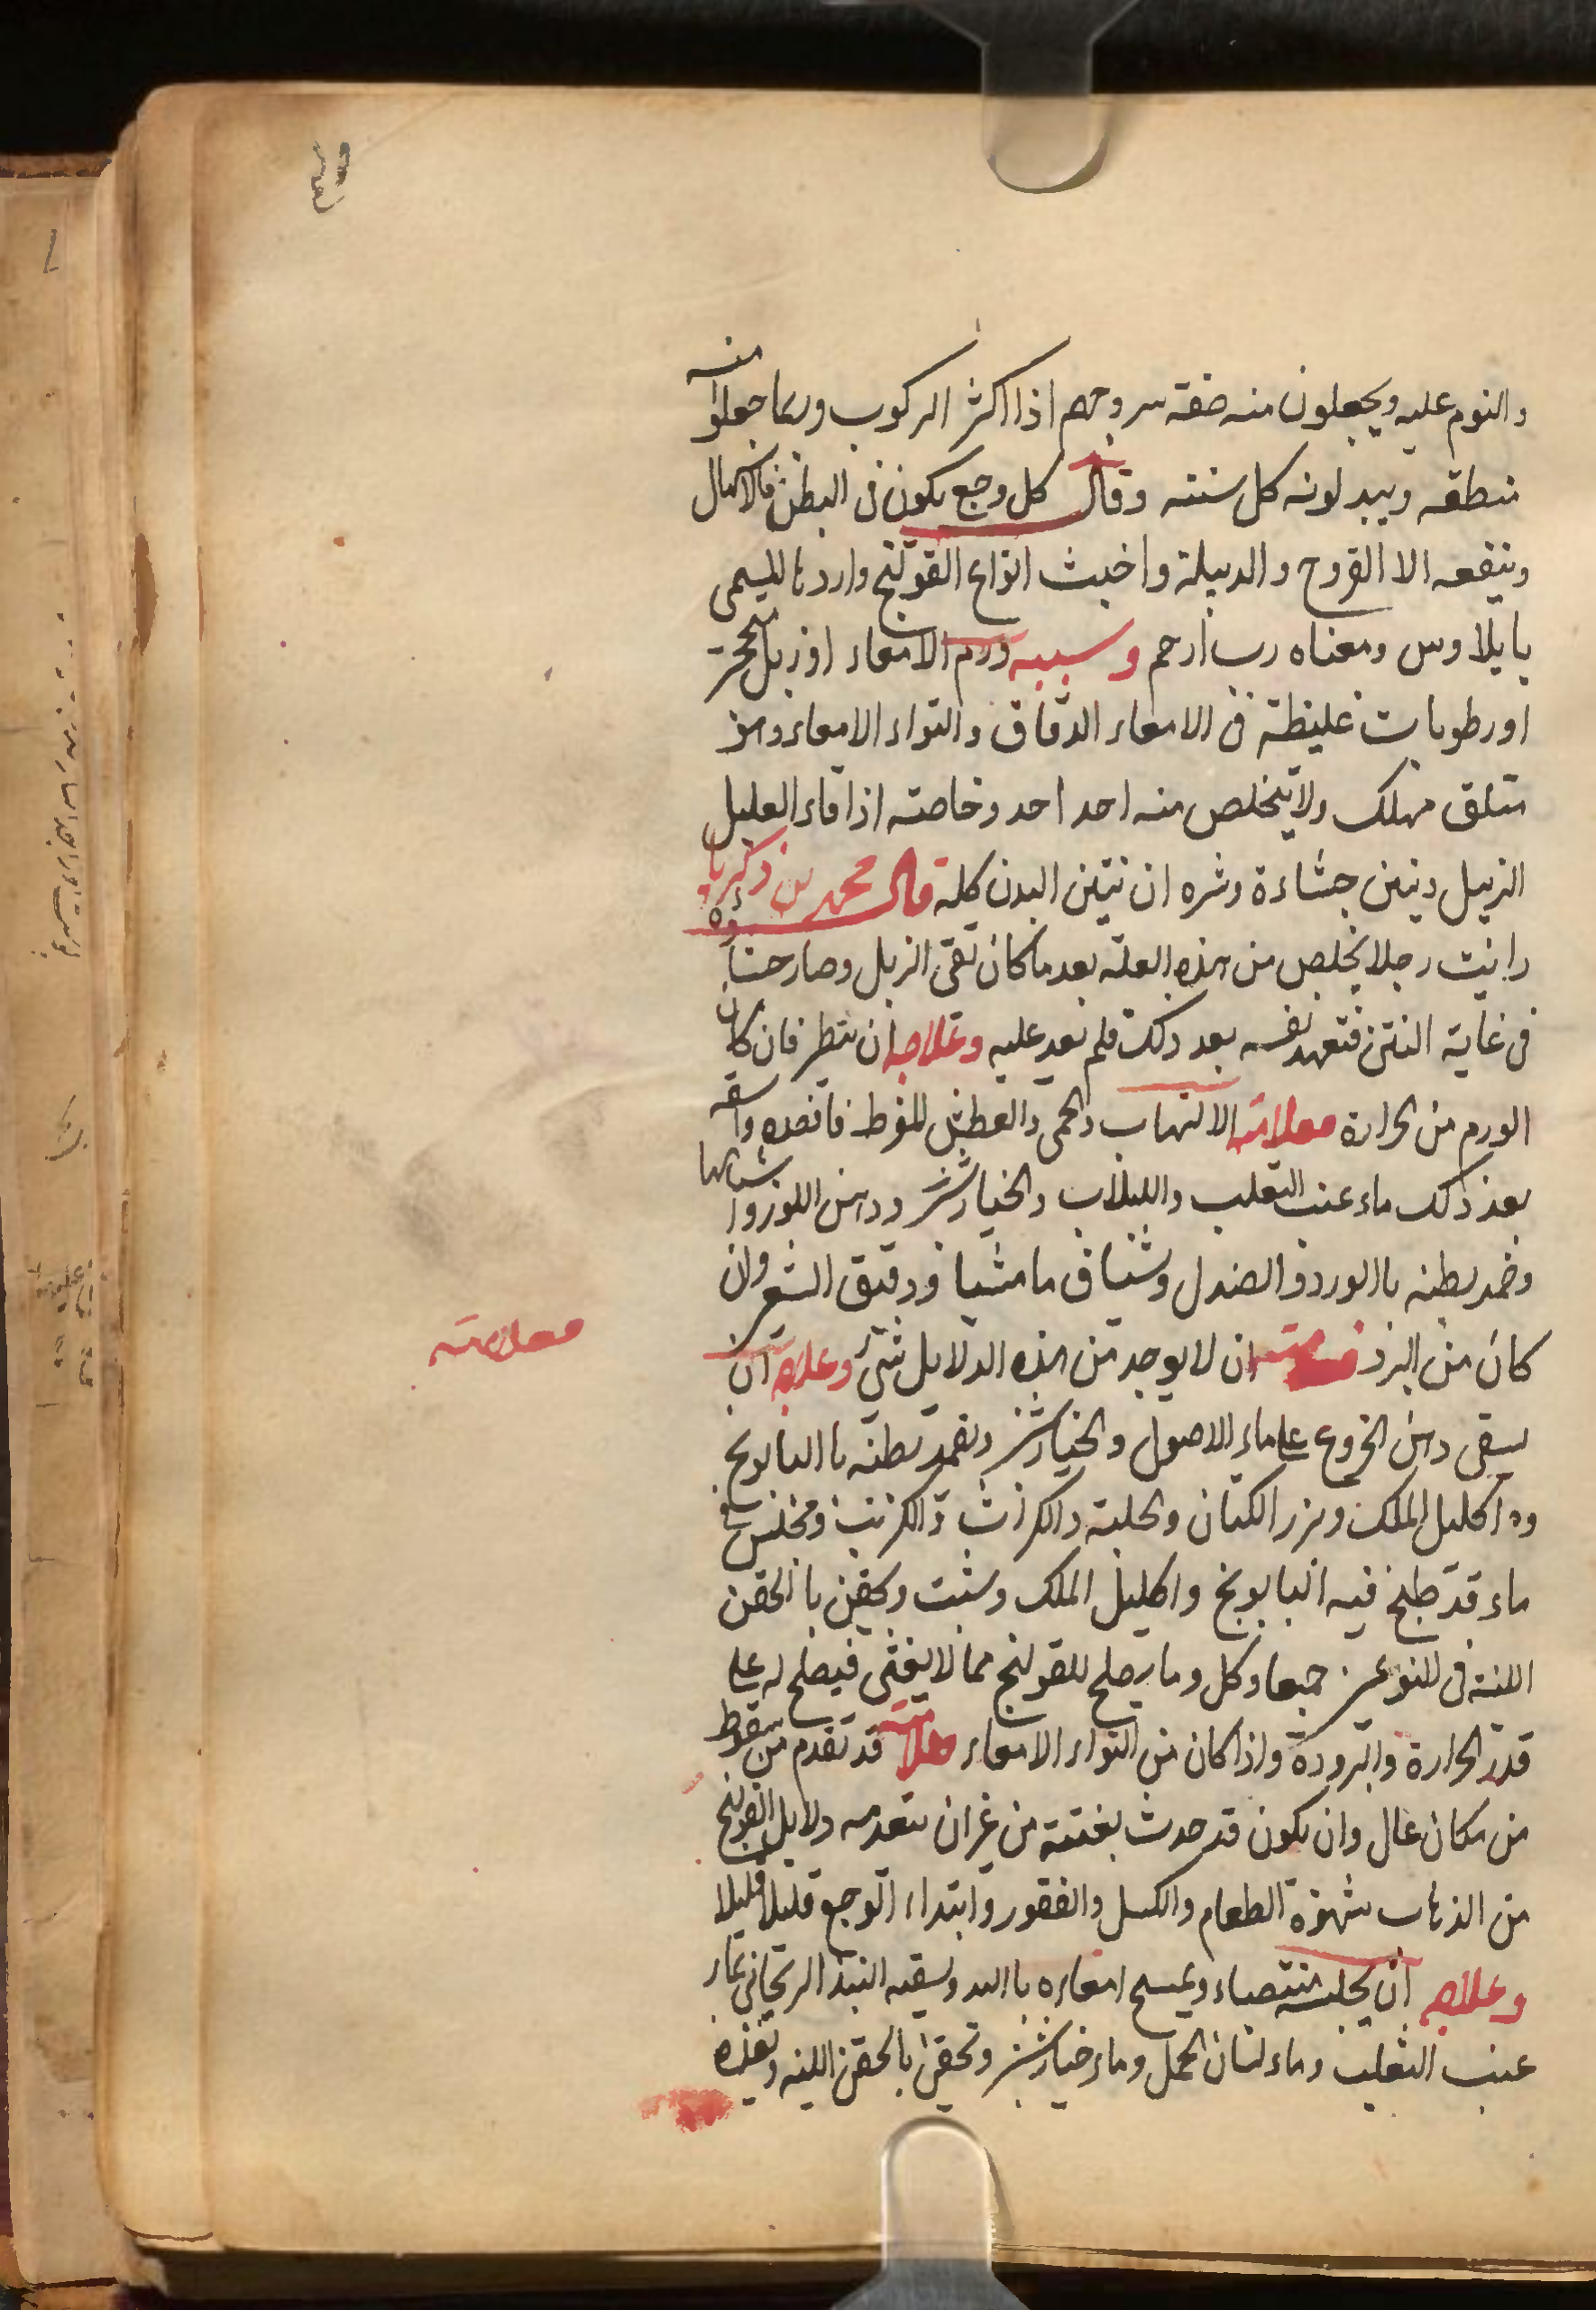 والنوم عليه ويجعلون منه صفة سروجهم اذا اكثر الركوب وربما جعلوا منه
منطقه ويبدلونه كل سنته وقال كل وجع يكون في البطن فالاسهال
وينفعه الا القروح والدبيلة واخبث انواع القولنج واردئها المسمى
بايلاوس ومعناه رب ارحم وسببه ورم الامعاء او زبل متحجرة
او رطوبات غليظة في الامعاء الدقاق والتواء الامعاء وهو
متلق مهلك ولا يتخلص منه احد احد وخاصته اذا قاء العليل
الزبيل ونيتن جشاءة وشره ان نيتن البدن كله قال محمد بن زكريا
رائيت رجلا يخلص من هذه العلة بعد ما كان تقى الزبل وصار جشاؤه
في غاية النتن فتعهد نفسه بعد ذلك فلم تعد عليه وعلاجه ان ينظر فان كان
الورم من الحرارة فعلامته الالتهاب والحمى والعطش المفرط فافصده واسقه
بعد ذلك ماء عنب الثعلب واللبلاب والخيارشنبر ودهن اللوز واشباهها
وضمد بطنه باالورد والصندل وشياف ماميثيا ودقيق الشعير وان
كان من البرد ان لا يوجد من هذه الدلايل شئ وعلاجه ان
فعلامته
يسقى دهن الخروع على ماء الاصول والخيارشنبر وتضمد بطنه باالبابونج
وه اكليل الملك وبزر الكتان والحلبة والكراث والكرنب ومجلس في
ماء قد طبخ فيه البابونج واكليل الملك وشبت ويحقن باالحقن
اللينة في النوعين جميعا وكل وما يصلح للقولنج مما لا يغثى فيصلح له على
قدر الحرارة والبرودة واذا كان من التواء الامعاء فعلامته قد تقدم من سقوط
من مكان عال وان يكون قد حدث بغتته من غير ان يتقدمه دلايل القولنج
من الذهاب شهوة الطعام والكسل والفتور وابتداء الوجع قليلا قليلا
وعلاجه ان يجلسه منتصباء ويمسح امعاءه بااليد ويسقيه النبيذ الريحاني بماء
عنب الثعلب وماء لسان الحمل وماء خيارشنبر وتحقن بالحقن اللينه وتغذه